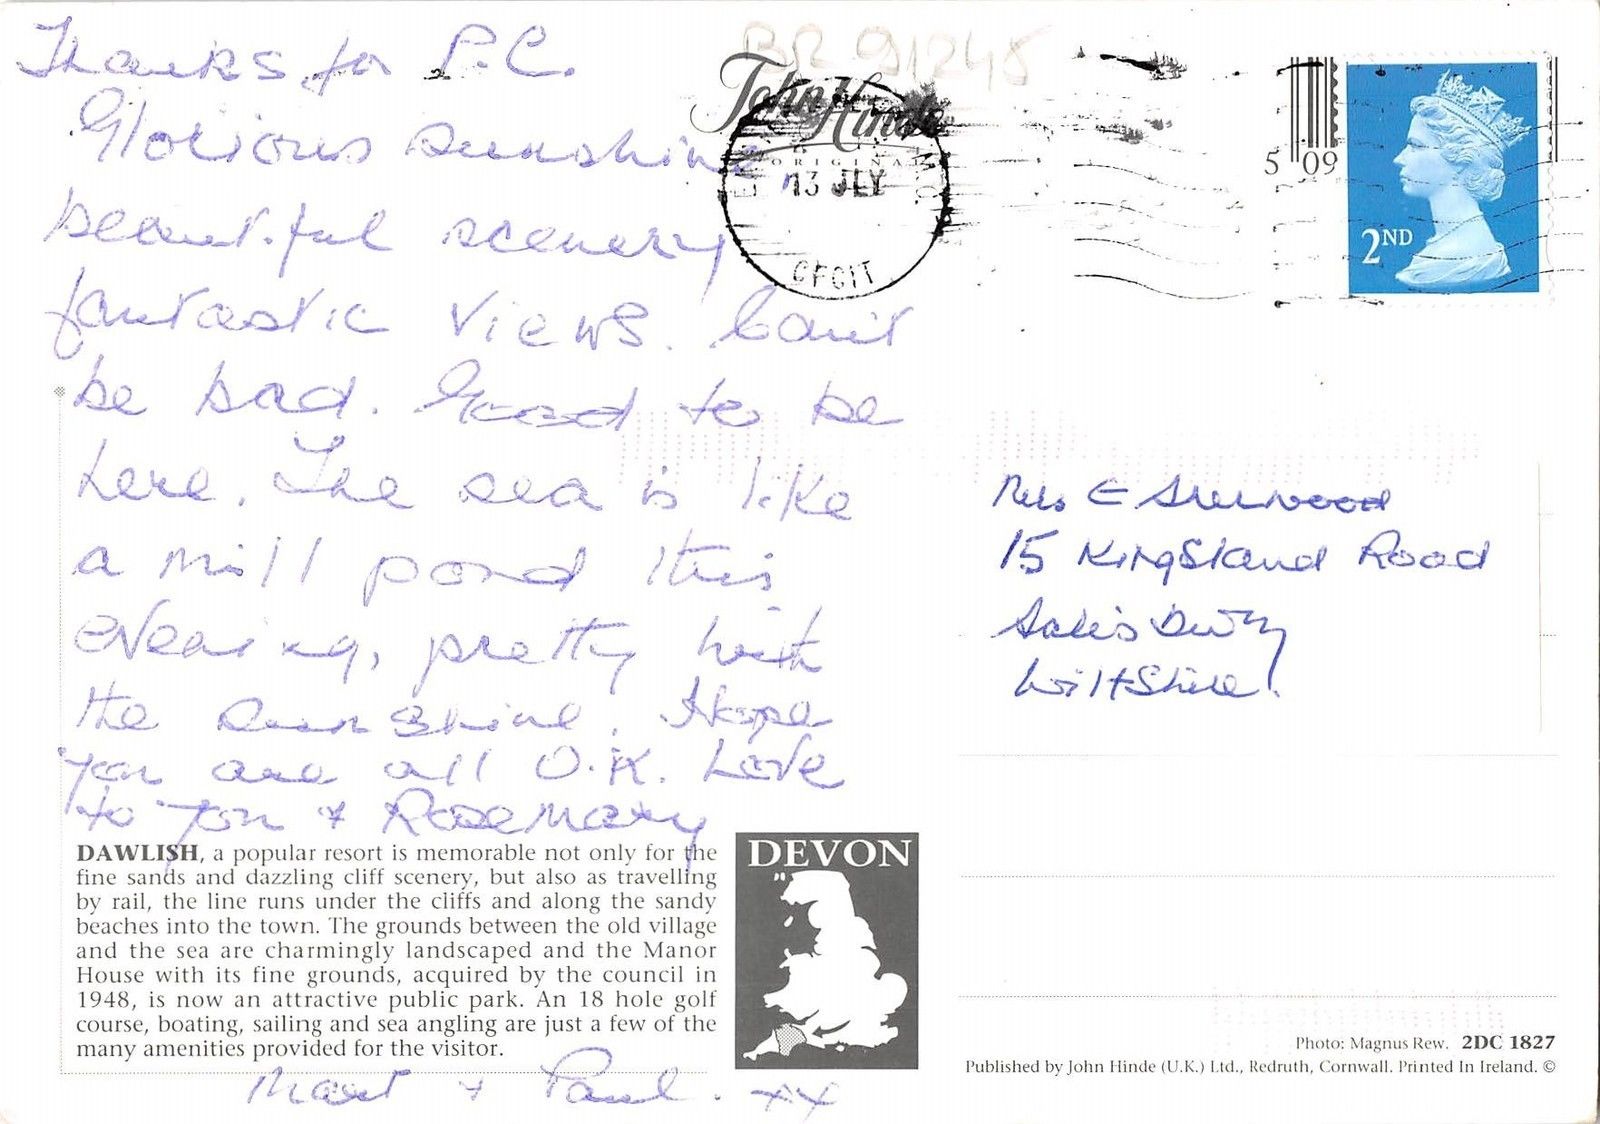 Thanks for P.C.
Glorious sunshine,
beautiful scenery
fantastic views. Can't
be bad. Good to be
here. The sea is like
a mill pond this
evening, pretty with
the sunshine. Hope
you are all O.K. Love
to you + Rosemary
DAWLISH, a popular resort is memorable not only for the
fine sands and dazzling cliff scenery, but also as travelling
by rail, the line runs under the cliffs and along the sandy
beaches into the town. The grounds between the old village
and the sea are charmingly landscaped and the Manor
House with its fine grounds, acquired by the council in
1948, is now an attractive public park. An 18 hole golf
course, boating, sailing and sea angling are just a few of the
many amenities provided for the visitor.
+ Paul. xx
DEVON
BR 91248
John Hinde
ORIGINAL
13 JLY
5 09
2ND
Mrs E Sherwood
15 Kingsland Road
Salisbury
Wiltshire.
Photo: Magnus Rew. 2DC 1827
Published by John Hinde (U.K.) Ltd., Redruth, Cornwall. Printed In Ireland. ©